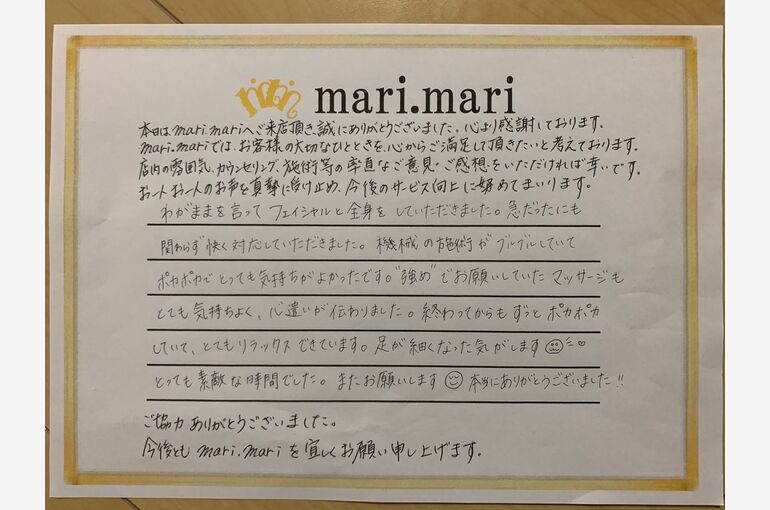 mari.mari
本日はmari.mariへご来店頂き、誠にありがとうございました。心より感謝しております。
mari.mariでは、お客様の大切なひとときを、心からご満足して頂きたいと考えております。
店内の雰囲気、カウンセリング、施術等の率直なご意見・ご感想をいただければ幸いです。
お一人お一人のお声を真摯に受け止め、今後のサービス向上に努めてまいります。
わがままを言ってフェイシャルと全身をしていただきました。急だったにも
関わらず快く対応していただきました。機械の施術がブルブルしていて
ポカポカでとっても気持ちがよかったです。"強め"でお願いしていたマッサージも
とても気持ちよく、心遣いが伝わりました。終わってからもずっとポカポカ
していて、とてもリラックスできています。足が細くなった気がします
とっても素敵な時間でした。またお願いします 本当にありがとうございました!!
ご協力ありがとうございました。
今後とも mari.mariを宜しくお願い申し上げます。